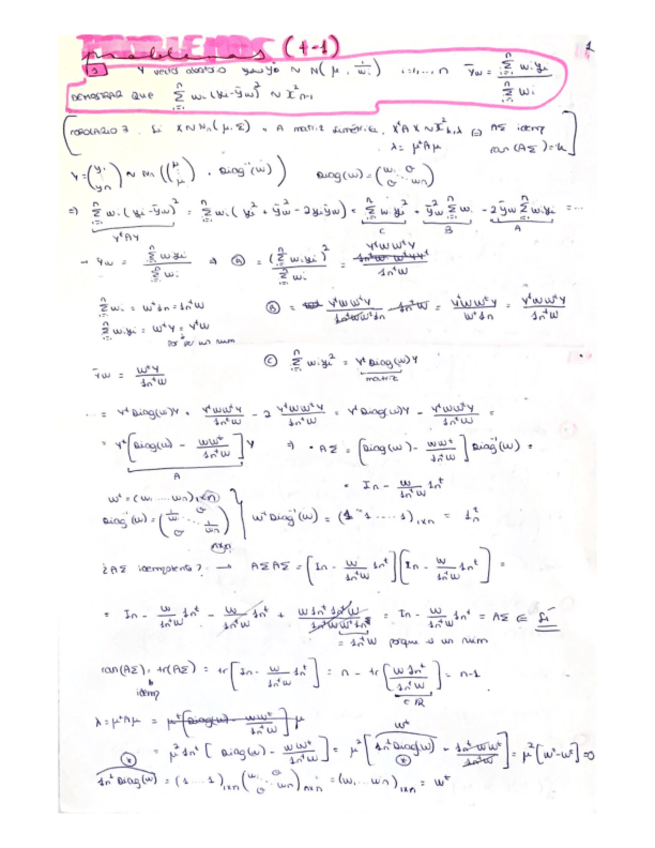 problemas (1-1)
1
1 Y yi ~ N(μ, 1/wi) i=1,...,n ȳw = Σ(i=1..n) wi yi / Σ(i=1..n) wi
DEMOSTRAR QUE Σ(i=1..n) wi (yi-ȳw)² ~ χ²n-1
COROLARIO 7. Si X~Nn(μ, Σ) A matriz simétrica, XᵗAX ~ χ²k,λ ⇔ AΣ idemp
λ = μᵗAμ ran(AΣ)=k
Y = (y1 yn) ~ Nn((μ μ), Diag⁻¹(w)) Diag(w) = (w1 0 0 wn)
⇒ Σ wi (yi-ȳw)² = Σ wi (yi² + ȳw² - 2yiȳw) = Σ wi yi² + ȳw² Σ wi - 2ȳw Σ wi yi = ...
YᵗAY C B A
→ ȳw = Σ wi yi / Σ wi ⇒ Ⓐ = (Σ wi yi)² / Σ wi = YᵗwwᵗY / 1nᵗw
Σ wi = wᵗ1n = 1nᵗw Ⓑ = YᵗwwᵗY / 1nᵗwwᵗ1n 1nᵗw = YᵗwwᵗY / wᵗ1n = YᵗwwᵗY / 1nᵗw
Σ wi yi = wᵗY = Yᵗw
por ser un num
ȳw = wᵗY / 1nᵗw Ⓒ Σ wi yi² = YᵗDiag(w)Y
matriz
... = YᵗDiag(w)Y + YᵗwwᵗY / 1nᵗw - 2 YᵗwwᵗY / 1nᵗw = YᵗDiag(w)Y - YᵗwwᵗY / 1nᵗw =
= Yᵗ[Diag(w) - wwᵗ / 1nᵗw]Y ⇒ · AΣ = [Diag(w) - wwᵗ / 1nᵗw] Diag⁻¹(w) =
A
= In - w / 1nᵗw 1nᵗ
wᵗ = (w1 ... wn)1xn
Diag⁻¹(w) = (1/w1 0 0 1/wn)nxn wᵗDiag⁻¹(w) = (1 1 ... 1)1xn = 1nᵗ
¿AΣ idempotente? → AΣAΣ = [In - w / 1nᵗw 1nᵗ][In - w / 1nᵗw 1nᵗ] =
= In - w / 1nᵗw 1nᵗ - w / 1nᵗw 1nᵗ + w1nᵗ1nᵗw / 1nᵗwwᵗ1n = In - w / 1nᵗw 1nᵗ = AΣ Sí
= 1nᵗw porque es un núm
ran(AΣ) = tr(AΣ) = tr[In - w / 1nᵗw 1nᵗ] = n - tr[w1nᵗ / 1nᵗw] = n-1
idemp ∈ R
λ = μᵗAμ = μᵗ[Diag(w) - wwᵗ / 1nᵗw]μ
= μ²1nᵗ[Diag(w) - wwᵗ / 1nᵗw] = μ²[1nᵗDiag(w) - 1nᵗwwᵗ / 1nᵗw] = μ²[wᵗ-wᵗ] = 0
wᵗ
1nᵗDiag(w) = (1 ... 1)1xn (w1 0 0 wn)nxn = (w1 ... wn)1xn = wᵗ